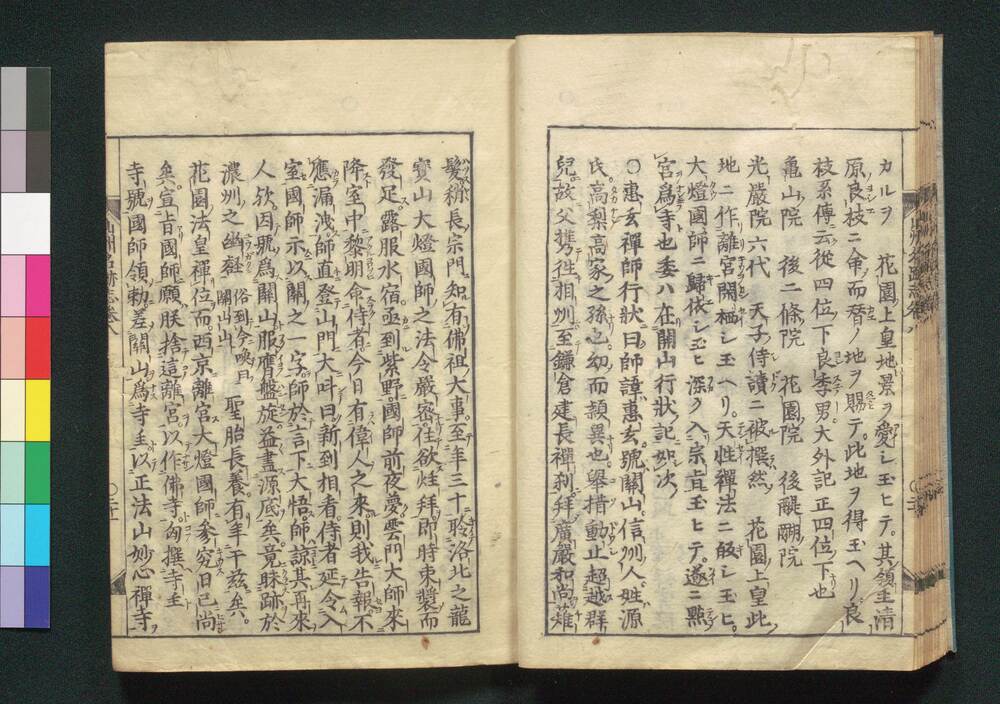 カルヲ　花園上皇地景ヲ愛シ玉ヒテ。其領主清
原良枝ニ命而替ノ地ヲ賜テ。此地ヲ得玉ヘリ良
枝系傳云從四位下良季男。大外記正四位下也
龜山院　後二條院　花園院　後醍醐院
光嚴院六代　天子侍讀ニ被撰然　花園上皇此
地ニ作離宮開栖シ玉ヘリ。天性禪法ニ皈シ玉ヒ。
大燈國師ニ歸依シ玉ヒ深ク入宗旨玉ヒテ。遂ニ點
宮爲寺也委ハ在開山行狀記如次
〇惠玄禪師行狀曰師諱惠玄。號關山信州人。姓源
氏。高梨高家之孫也幼而頴異也舉措動止超越群
兒故父携徃相州至鎌倉建長禪刹拜廣嚴和尚薙
髮稱長宗門知有佛祖大事。至年三十聆洛北之龍
寳山大燈國師之法令嚴密。徃欲炷拜即時束裝而
發足。露服水宿亟到紫野。國師前夜夢雲門大師來
降室中黎明命侍者今日有偉人之來則我告報不
應漏洩。師直登山門大叫曰新到相看。侍者延令入
室國師示以關之一字。師於言下大悟。師諒其再來
人欤。因號爲關山服膺盤旋益盡源底矣竟昧跡於
濃州之幽谿俗到今喚曰關山山聖胎長養有年于茲矣。
花園法皇禪位而西京離宮大燈國師。參究旧已尚
矣。宣旨國師。願朕捨這離宮以作佛寺。匃撰寺主
寺號國師領勅差關山爲寺主以正法山妙心禪寺